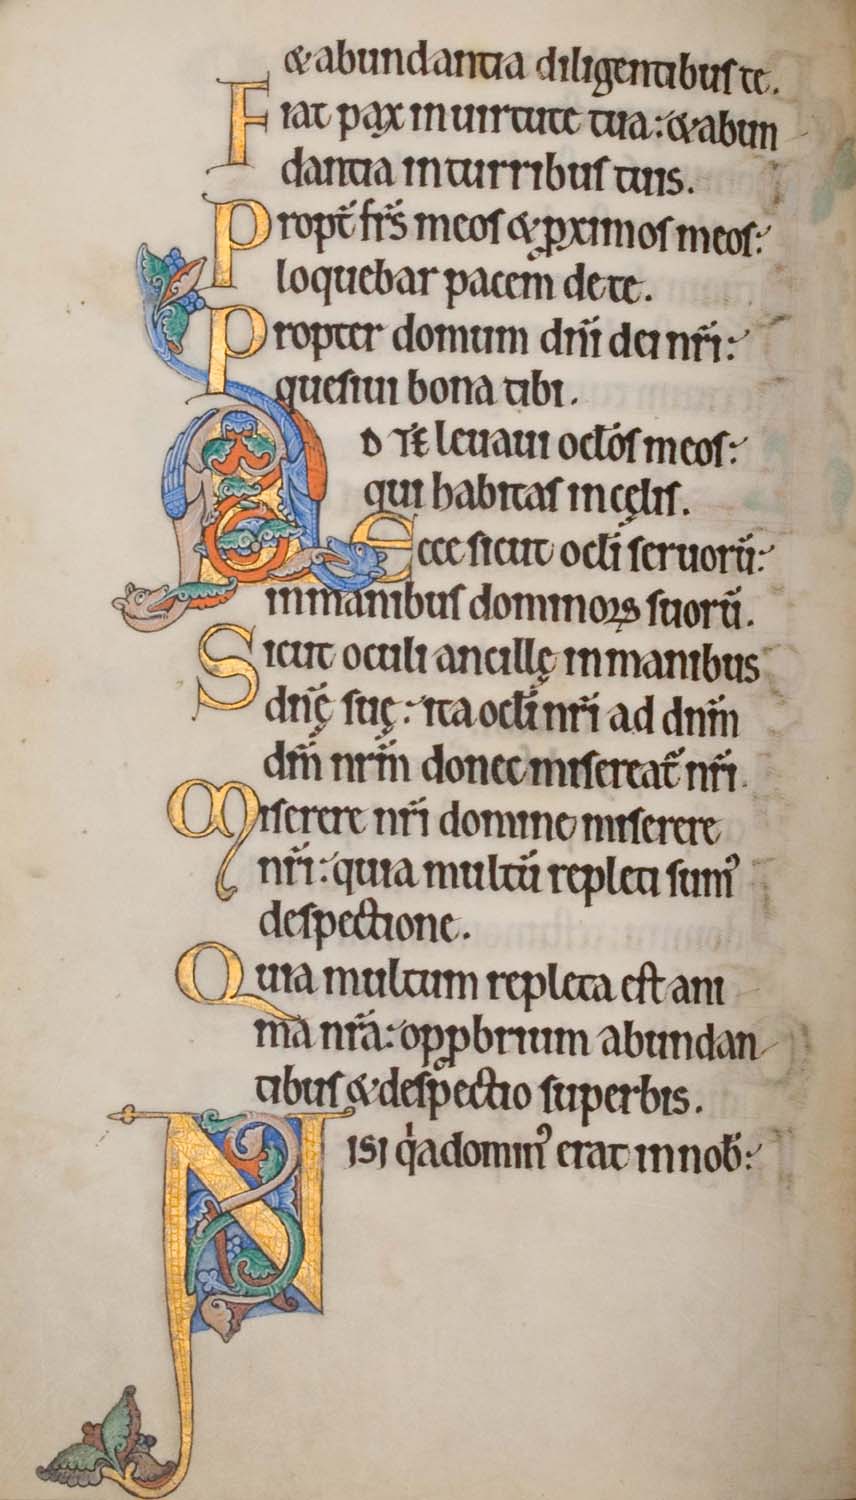 & abundantia diligentibus te.
Fiat pax in uirtute tua: & abun
dantia in turribus tuis.
Propt̄ fr̄s meos & ꝓximos meos:
loquebar pacem de te.
Propter domum dn̄i dei nr̄i:
quesiui bona tibi.
AD TE leuaui oc̄łos meos:
qui habitas in cęlis.
Ecce sicut oc̄łi seruorū:
in manibus dominoꝝ suorū.
Sicut oculi ancillę in manibus
dn̄ę suę: ita oc̄łi nr̄i ad dn̄m
dm̄ nr̄m donec misereat̄ nr̄i.
Miserere nr̄i domine miserere
nr̄i: quia multū repleti sumꝰ
despectione.
Quia multum repleta est ani
ma nr̄a: opꝓbrium abundan
tibus & despectio superbis.
NISI qͥa dominꝰ erat in nob̄: